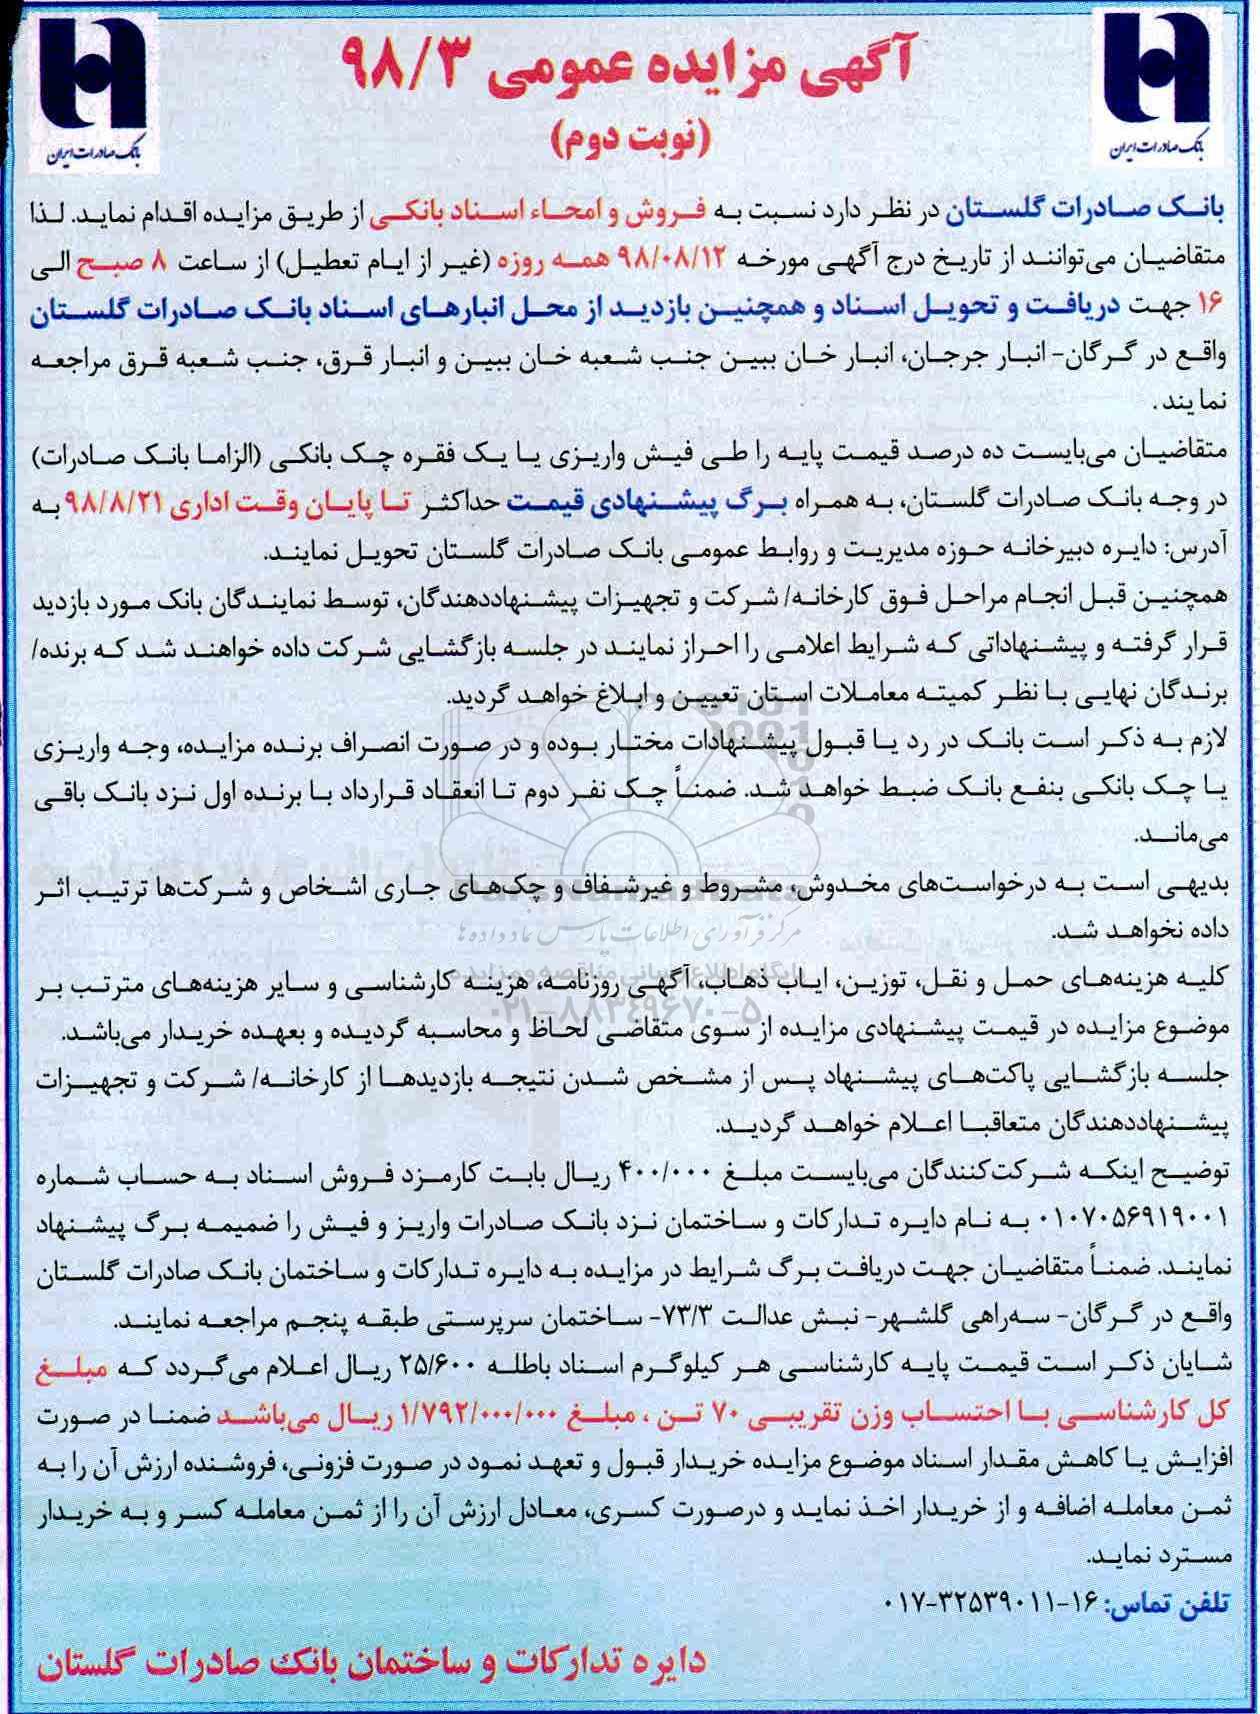 بانک صادرات ایران
آگهی مزایده عمومی ۹۸/۳
(نوبت دوم)
بانک صادرات ایران
بانک صادرات گلستان در نظر دارد نسبت به فروش و امحاء اسناد بانکی از طریق مزایده اقدام نماید. لذا
متقاضیان می‌توانند از تاریخ درج آگهی مورخه ۹۸/۰۸/۱۲ همه روزه (غیر از ایام تعطیل) از ساعت ۸ صبح الی
۱۶ جهت دریافت و تحویل اسناد و همچنین بازدید از محل انبارهای اسناد بانک صادرات گلستان
واقع در گرگان- انبار جرجان، انبار خان ببین جنب شعبه خان ببین و انبار قرق، جنب شعبه قرق مراجعه
نمایند.
متقاضیان می‌بایست ده درصد قیمت پایه را طی فیش واریزی یا یک فقره چک بانکی (الزاما بانک صادرات)
در وجه بانک صادرات گلستان، به همراه برگ پیشنهادی قیمت حداکثر تا پایان وقت اداری ۹۸/۸/۲۱ به
آدرس: دایره دبیرخانه حوزه مدیریت و روابط عمومی بانک صادرات گلستان تحویل نمایند.
همچنین قبل انجام مراحل فوق کارخانه/ شرکت و تجهیزات پیشنهاددهندگان، توسط نمایندگان بانک مورد بازدید
قرار گرفته و پیشنهاداتی که شرایط اعلامی را احراز نمایند در جلسه بازگشایی شرکت داده خواهند شد که برنده/
برندگان نهایی با نظر کمیته معاملات استان تعیین و ابلاغ خواهد گردید.
لازم به ذکر است بانک در رد یا قبول پیشنهادات مختار بوده و در صورت انصراف برنده مزایده، وجه واریزی
یا چک بانکی بنفع بانک ضبط خواهد شد. ضمناً چک نفر دوم تا انعقاد قرارداد با برنده اول نزد بانک باقی
می‌ماند.
بدیهی است به درخواست‌های مخدوش، مشروط و غیرشفاف و چک‌های جاری اشخاص و شرکت‌ها ترتیب اثر
داده نخواهد شد.
مرکز فرآوری اطلاعات پارس نماد داده ها
پایگاه اطلاع رسانی مناقصه و مزایده
کلیه هزینه‌های حمل و نقل، توزین، ایاب ذهاب، آگهی روزنامه، هزینه کارشناسی و سایر هزینه‌های مترتب بر
۰۲۱-۸۸۳۴۹۶۷۰-۵
موضوع مزایده در قیمت پیشنهادی مزایده از سوی متقاضی لحاظ و محاسبه گردیده و بعهده خریدار می‌باشد.
جلسه بازگشایی پاکت‌های پیشنهاد پس از مشخص شدن نتیجه بازدیدها از کارخانه/ شرکت و تجهیزات
پیشنهاددهندگان متعاقبا اعلام خواهد گردید.
توضیح اینکه شرکت‌کنندگان می‌بایست مبلغ ۴۰۰/۰۰۰ ریال بابت کارمزد فروش اسناد به حساب شماره
۰۱۰۷۰۵۶۹۱۹۰۰۱ به نام دایره تدارکات و ساختمان نزد بانک صادرات واریز و فیش را ضمیمه برگ پیشنهاد
نمایند. ضمناً متقاضیان جهت دریافت برگ شرایط در مزایده به دایره تدارکات و ساختمان بانک صادرات گلستان
واقع در گرگان- سه‌راهی گلشهر- نبش عدالت ۷۳/۳- ساختمان سرپرستی طبقه پنجم مراجعه نمایند.
شایان ذکر است قیمت پایه کارشناسی هر کیلوگرم اسناد باطله ۲۵/۶۰۰ ریال اعلام می‌گردد که مبلغ
کل کارشناسی با احتساب وزن تقریبی ۷۰ تن ، مبلغ ۱/۷۹۲/۰۰۰/۰۰۰ ریال می‌باشد ضمنا در صورت
افزایش یا کاهش مقدار اسناد موضوع مزایده خریدار قبول و تعهد نمود در صورت فزونی، فروشنده ارزش آن را به
ثمن معامله اضافه و از خریدار اخذ نماید و درصورت کسری، معادل ارزش آن را از ثمن معامله کسر و به خریدار
مسترد نماید.
تلفن تماس: ۱۶-۰۱۷-۳۲۵۳۹۰۱۱
دایره تدارکات و ساختمان بانک صادرات گلستان